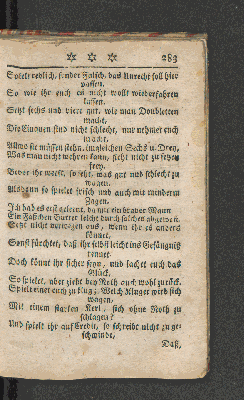 * * * 283
Spielt redlich, sonder Falsch, das Unrecht soll hier
passen.
So wie ihr euch es nicht wollt wiederfahren
lassen.
Setzt sechs und viere gut, wie man Doubletten
macht.
Die Einonen sind nicht schlecht, nur nehmet euch
in acht.
Allwo sie müssen stehn, imgleichen Sechs u. Drey,
Was man nicht wehren kann, steht nicht zu setzen
frey.
Bevor ihr werft, so seht, was gut und schlecht zu
wagen.
Alsdann so spielet frisch und auch mit munterm
Jagen.
Ich hab es erst gelernt, da mir ein braver Mann
Ein Fäßchen Burter leicht durch solches abgewann.
Setzt nicht verwogen aus, wenn ihr es anders
könnet.
Sonst fürchtet, daß ihr selbst leicht ins Gefängniß
rennet.
Doch könnt ihr sicher froy, und lachet euch das
Glück.
So spielet, aber zieht bey Noth auch wohl zurück.
Spielt einer euch zu klug; Welch Kluger wird sich
wagen.
Mit einem starken Kerl, sich ohne Noth zu
schlagen?
Und spielt ihr auf Credit, so schreibt nicht zu ge-
schwinde,
Daß,